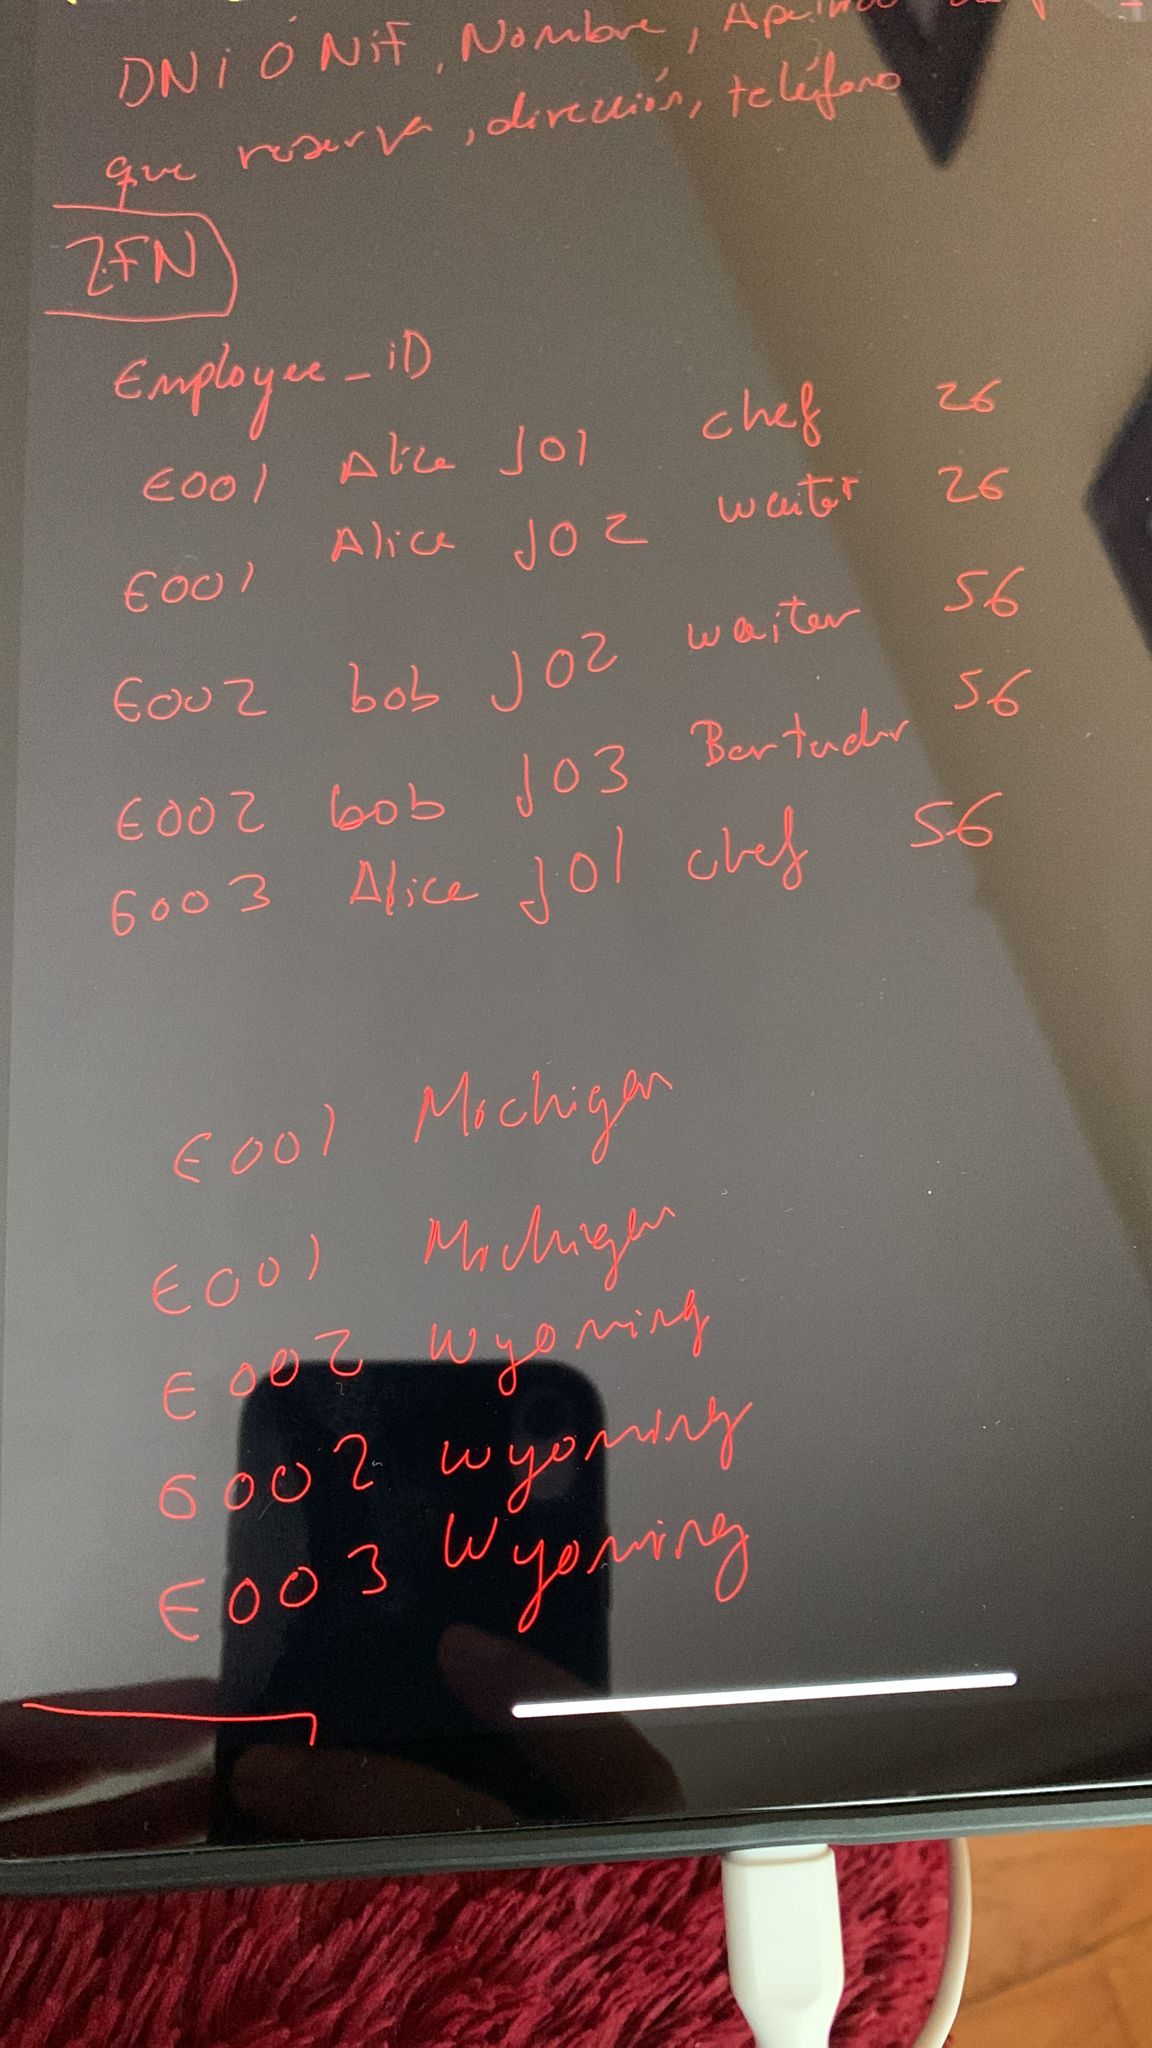 DNi Ó NiF, Nombre,
que reserva, dirección, teléfono
2FN
Employee_iD
E001 Alice J01 chef 26
E001 Alice J02 waiter 26
E002 bob J02 waiter 56
E002 bob J03 Bartender 56
E003 Alice J01 chef 56
E001 Michigan
E001 Michigan
E002 Wyoming
E002 Wyoming
E003 Wyoming